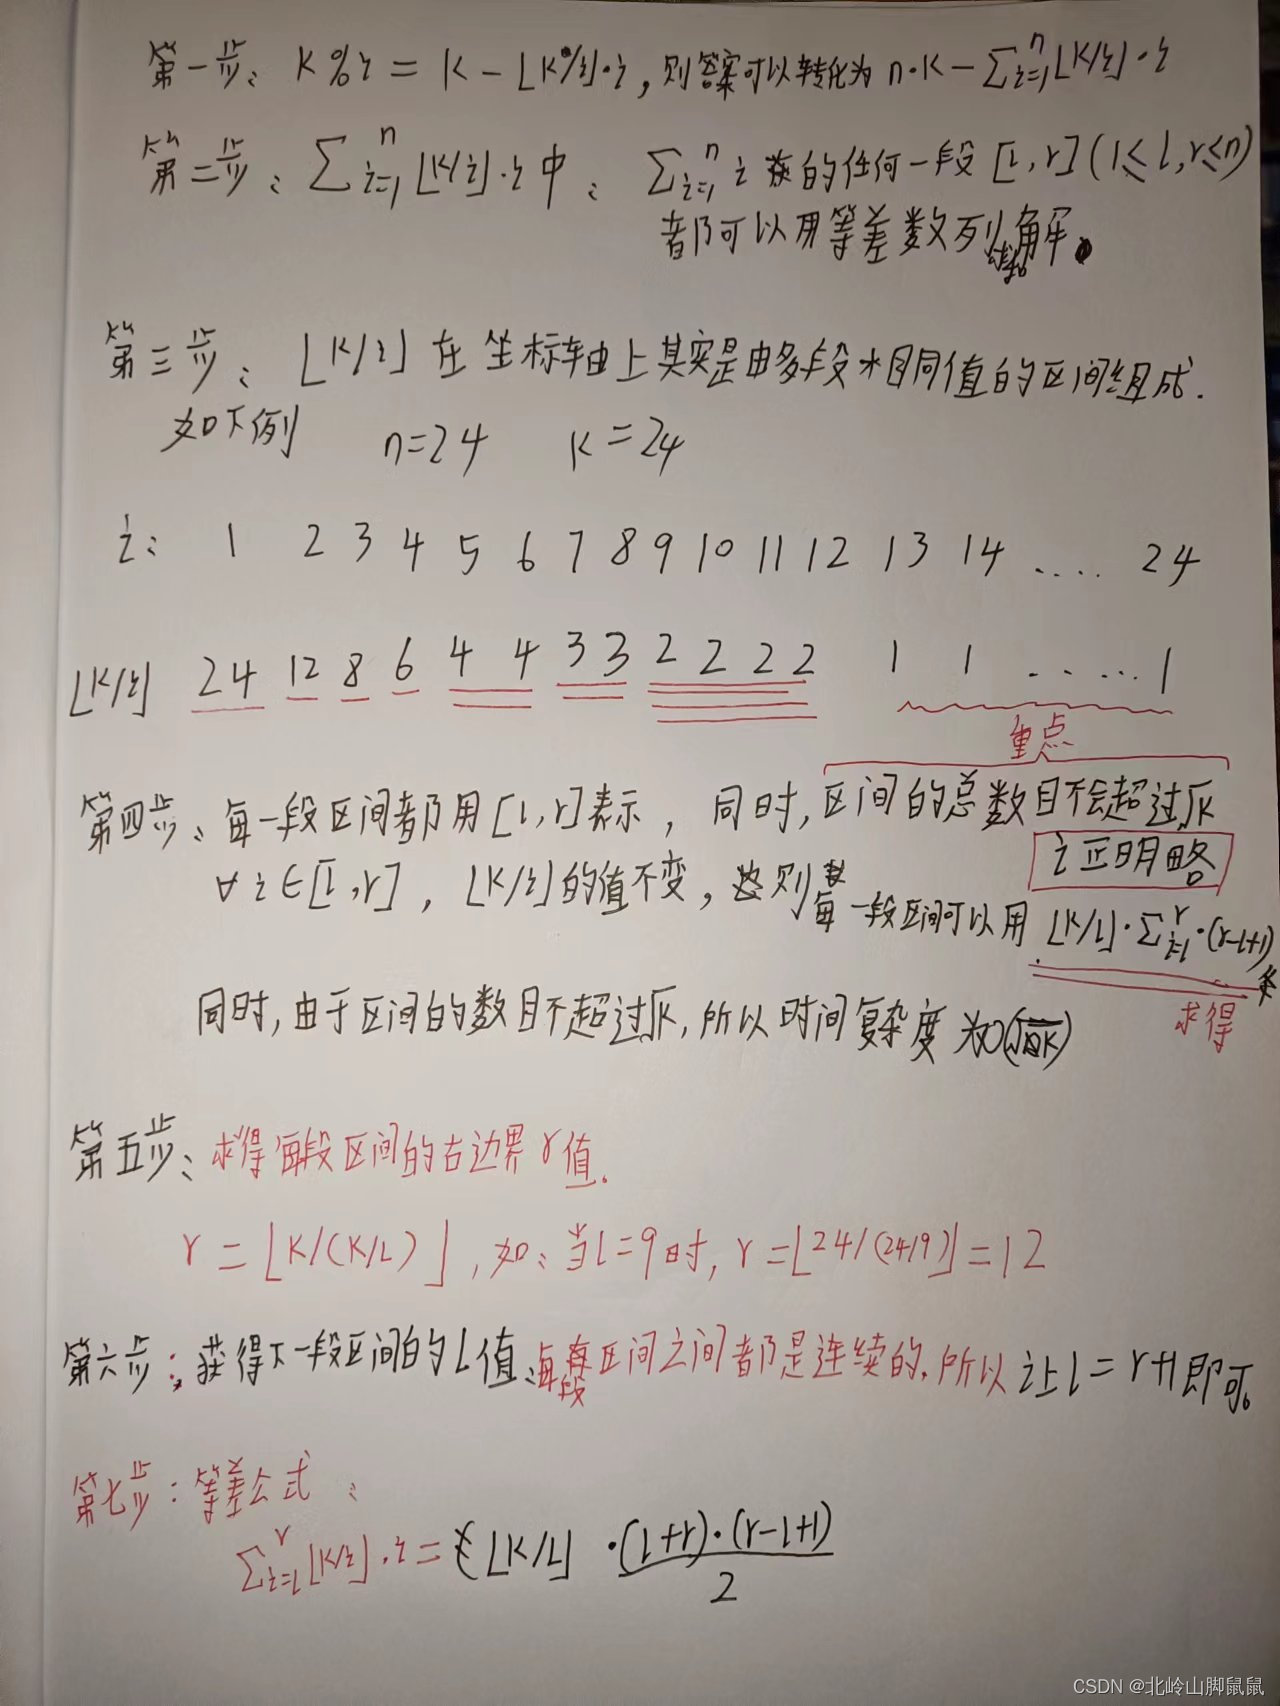 第一步: K%i = K - ⌊K/i⌋·i, 则答案可以转化为 n·K - ∑ⁿᵢ₌₁⌊K/i⌋·i
第二步: ∑ⁿᵢ₌₁⌊K/i⌋·i中: ∑ⁿᵢ₌₁ i 的任何一段 [l,r](1≤l,r≤n)
都可以用等差数列求和解.
第三步: ⌊K/i⌋在坐标轴上其实是由多段相同值的区间组成.
如下例 n=24 K=24
i: 1 2 3 4 5 6 7 8 9 10 11 12 13 14 .... 24
⌊K/i⌋ 24 12 8 6 4 4 3 3 2 2 2 2 1 1 ..... 1
重点
第四步: 每一段区间都用[l,r]表示, 同时,区间的总数目不会超过√K
证明略
∀i∈[l,r], ⌊K/i⌋的值不变, 则每一段区间可以用 ⌊K/l⌋·∑ʳᵢ₌ₗ·(r-l+1)
来
求得
同时,由于区间的数目不超过√K,所以时间复杂度为O(√K)
第五步: 求得每段区间的右边界r值.
r = ⌊K/(K/L)⌋, 如: 当l=9时, r=⌊24/(24/9)⌋=12
第六步: 获得下一段区间的L值:每段区间之间都是连续的,所以让l=r+1即可。
第七步: 等差公式:
∑ʳᵢ₌ₗ⌊K/i⌋·i = ⌊K/L⌋ · (l+r)·(r-l+1)
2
CSDN @北岭山脚鼠鼠